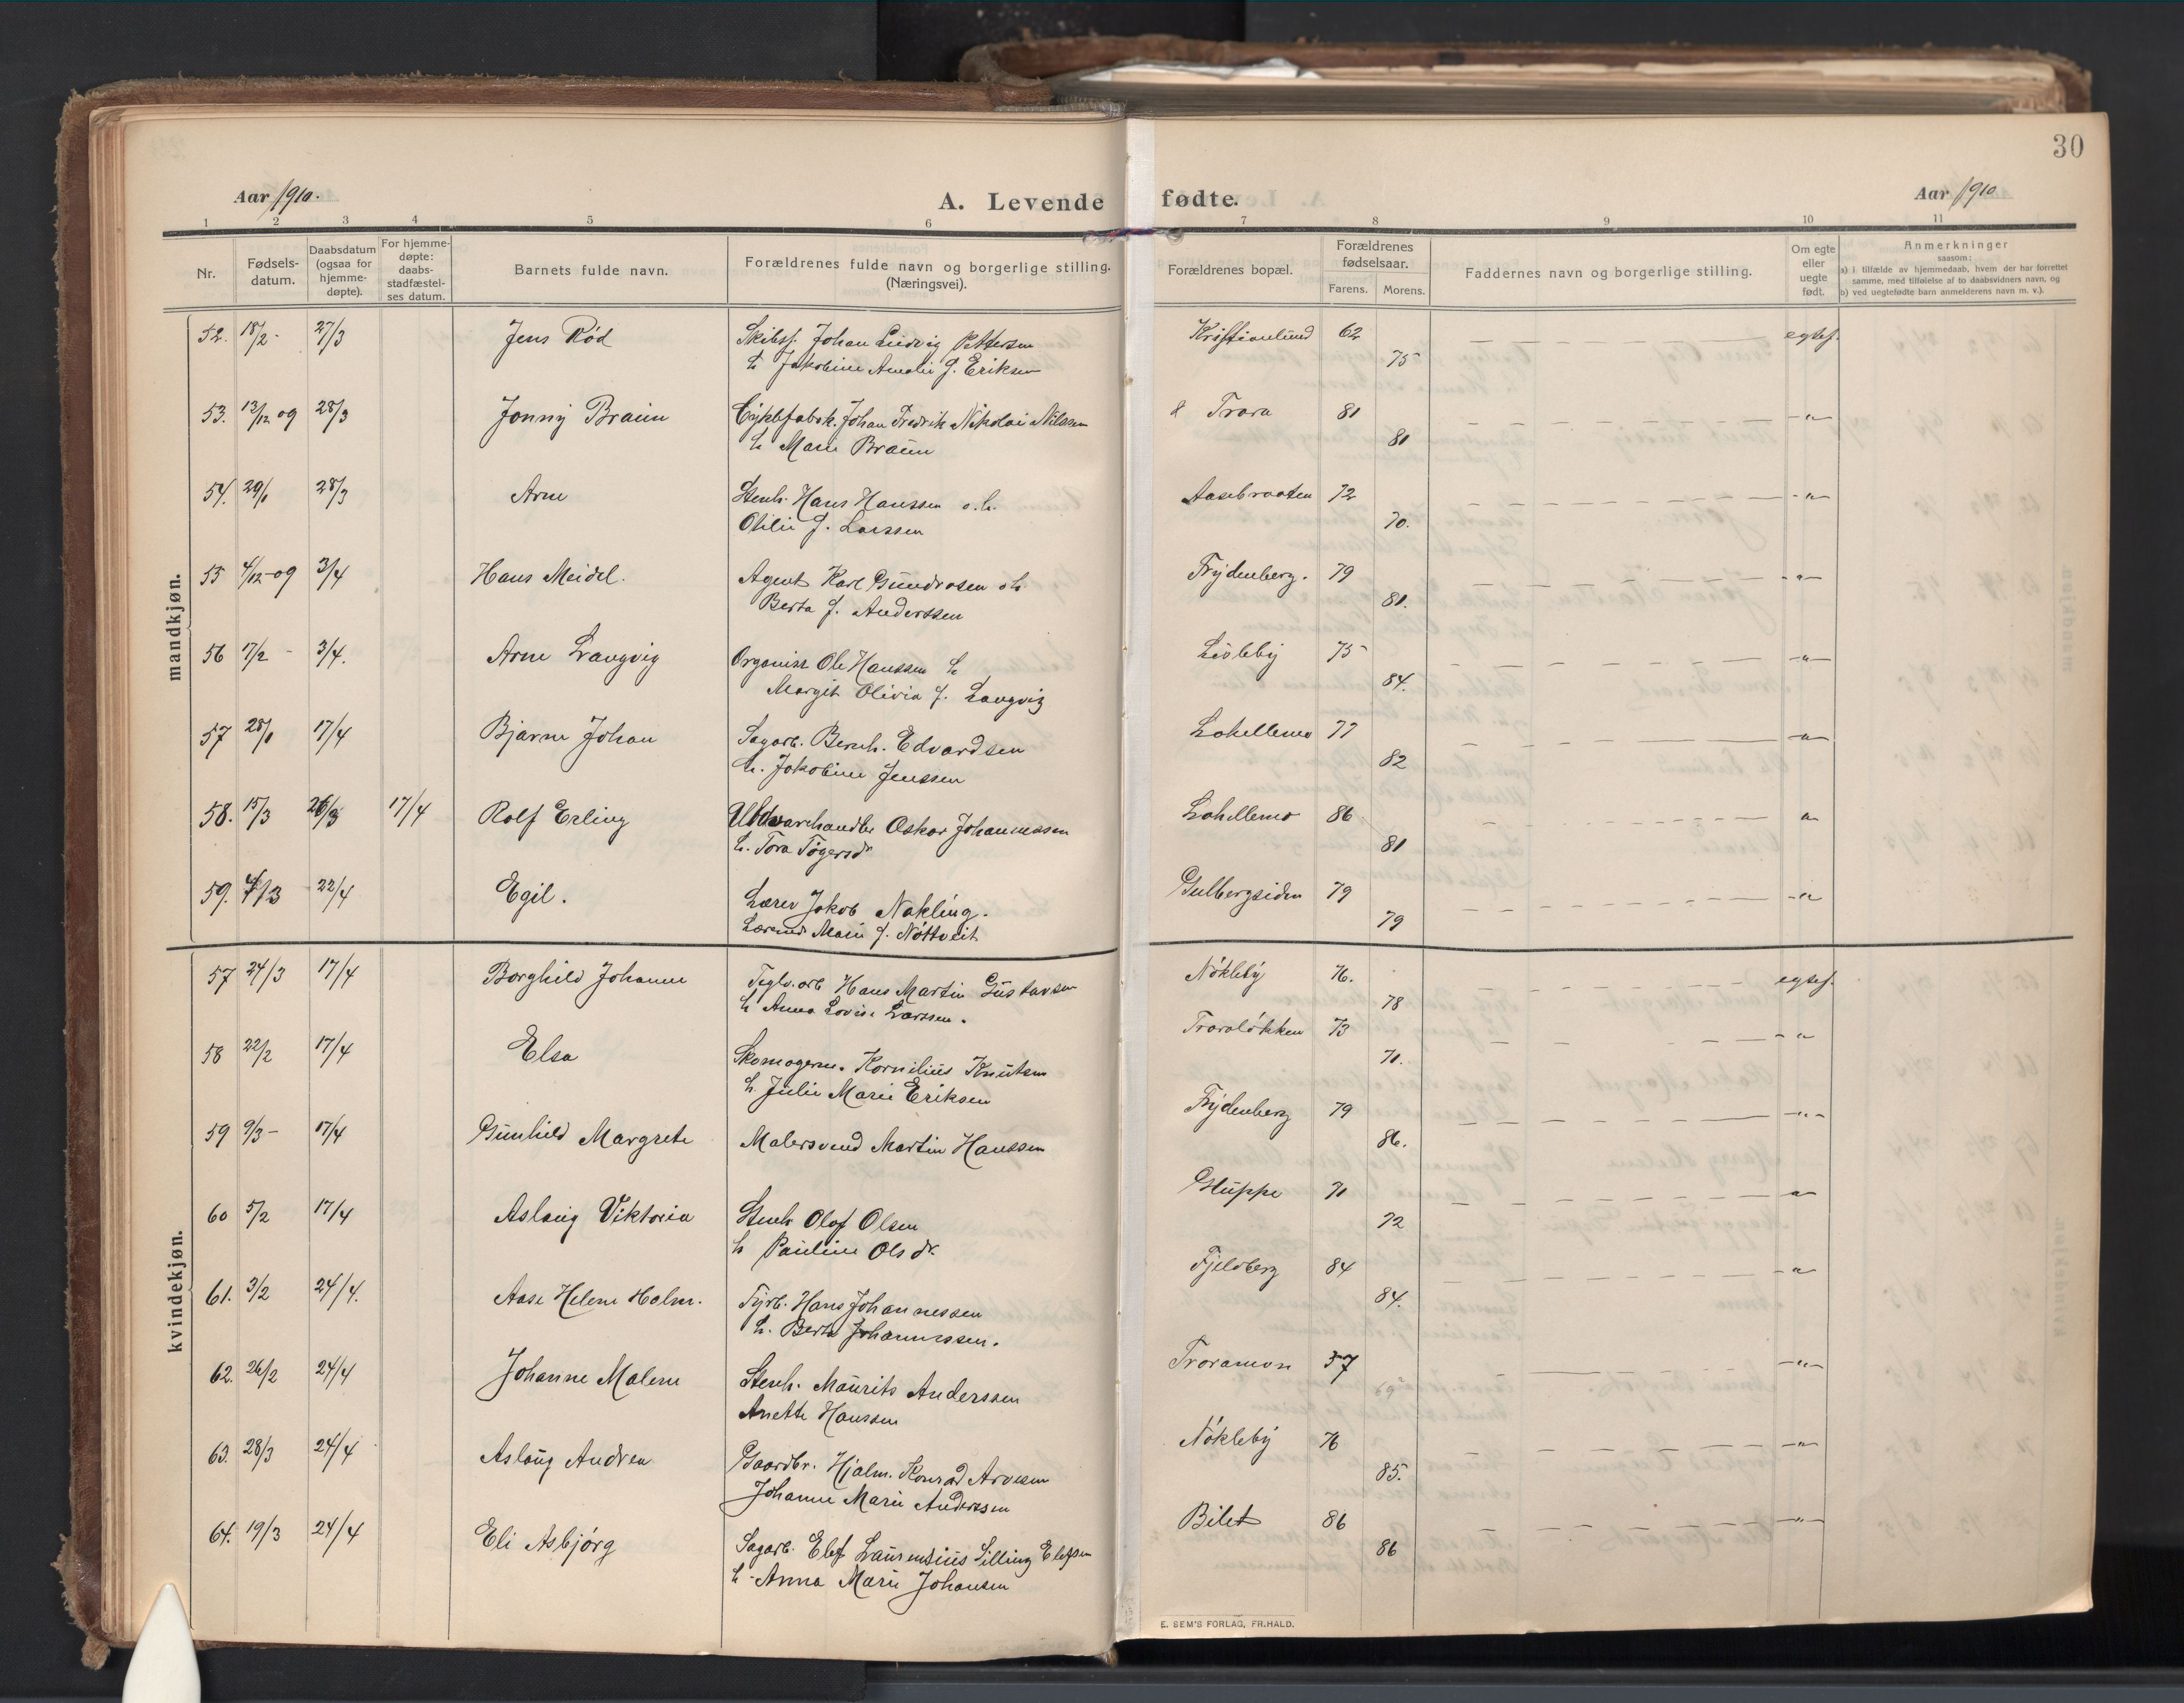 30
Aar 1910.
A. Levende fødte.
Aar 1910
1 2 3 4 5 6 7 8 9 10 11
Nr.
Fødsels-
datum.
Daabsdatum
(ogsaa for
hjemme-
døpte).
For hjemme-
døpte:
daabs-
stadfæstel-
ses datum.
Barnets fulde navn.
Forældrenes fulde navn og borgerlige stilling.
(Næringsvei).
Forældrenes bopæl.
Forældrenes
fødselsaar.
Farens. Morens.
Faddernes navn og borgerlige stilling.
Om egte
eller
uegte
født.
Anmerkninger
saasom:
a) i tilfælde av hjemmedaab, hvem der har forrettet
samme, med tilføielse af to daabsvidners navn, og
b) ved uegtefødte barn anmelderens navn m. v.).
mandkjøn.
52. 18/2 - 27/3 Jens Rød Skibsf. Johan Ludvig Pettersen Kristianlund 62 egtef.
h. Jakobine Amalie f. Eriksen 75
53. 13/12 09 28/3 Jonny Braun Cyklefabrk. Johan Fredrik Nikolai Nilssen Trara 81 -"-
h. Marie Braun 81
54. 29/1 28/3 Arne Stenh. Hans Hanssen o. h. Aasebraaten 72 -"-
Otilie f. Larssen 70.
55 4/12-09 3/4 Hans Meidel. Agent Karl Gundrosen o h. Frydenberg. 79 -"-
Berta f. Anderssen 81.
56 17/2 - 3/4. Arne Langvig Organist Ole Hanssen h. Lisleby 75 -"-
Margit Olivia f. Langvig 84.
57 28/1 17/4 Bjarne Johan Sagarb. Bernh. Edvardsen Lahellemo 77 -"-
h. Jakobine Jenssen 82
58. 15/3 26/3 17/4 Rolf Erling Uldvarehandler Oskar Johannessen Lahellemo 86 "
h. Tora Tøgersdr 81
59. 4/3 22/4 Egil. Lærer Jakob Nakling. Gulbergsiden 79 -"-
Lærerinde Marie f. Nøttveit 79
kvindekjøn.
57 24/3 17/4 Borghild Johanne Teglv.arb Hans Martin Gustavsen Nøkleby 76. egtef.
h. Anna Lovise Larssen. 78
58 22/2 17/4 Elsa Skomagerm. Kornilius Knutsen Traraløkken 73 -"
h. Julie Marie Eriksen 71.
59 9/3 - 17/4 Gunhild Margrete Malersvend Martin Hanssen Frydenberg 79 -"-
86.
60 5/2 17/4 Aslaug Viktoria Stenh Olaf Olsen Gluppe 71 -"-
h Pauline Olsdr. 72
61. 3/2 24/4. Aase Helene Holm. Fyrb. Hans Johannessen Fjeldberg 84 -"-
h. Berta Johannessen. 84.
62. 26/2 24/4 Johanne Malene Stenh. Maurits Anderssen Traramosen 57 -"-
Anette Hanssen 69
63. 28/3 24/4 Aslaug Andrea Gaardbr. Hjalm. Konrad Arvesen Nøkleby 76 -"-
Johanne Marie Anderssen 85.
64. 19/3 24/4 Eli Asbjørg Sagarb. Elef Laurensius Silling Elefsen Bilet 86 -"-
h. Anna Marie Johansen 86
E. SEM'S FORLAG, FR.HALD.